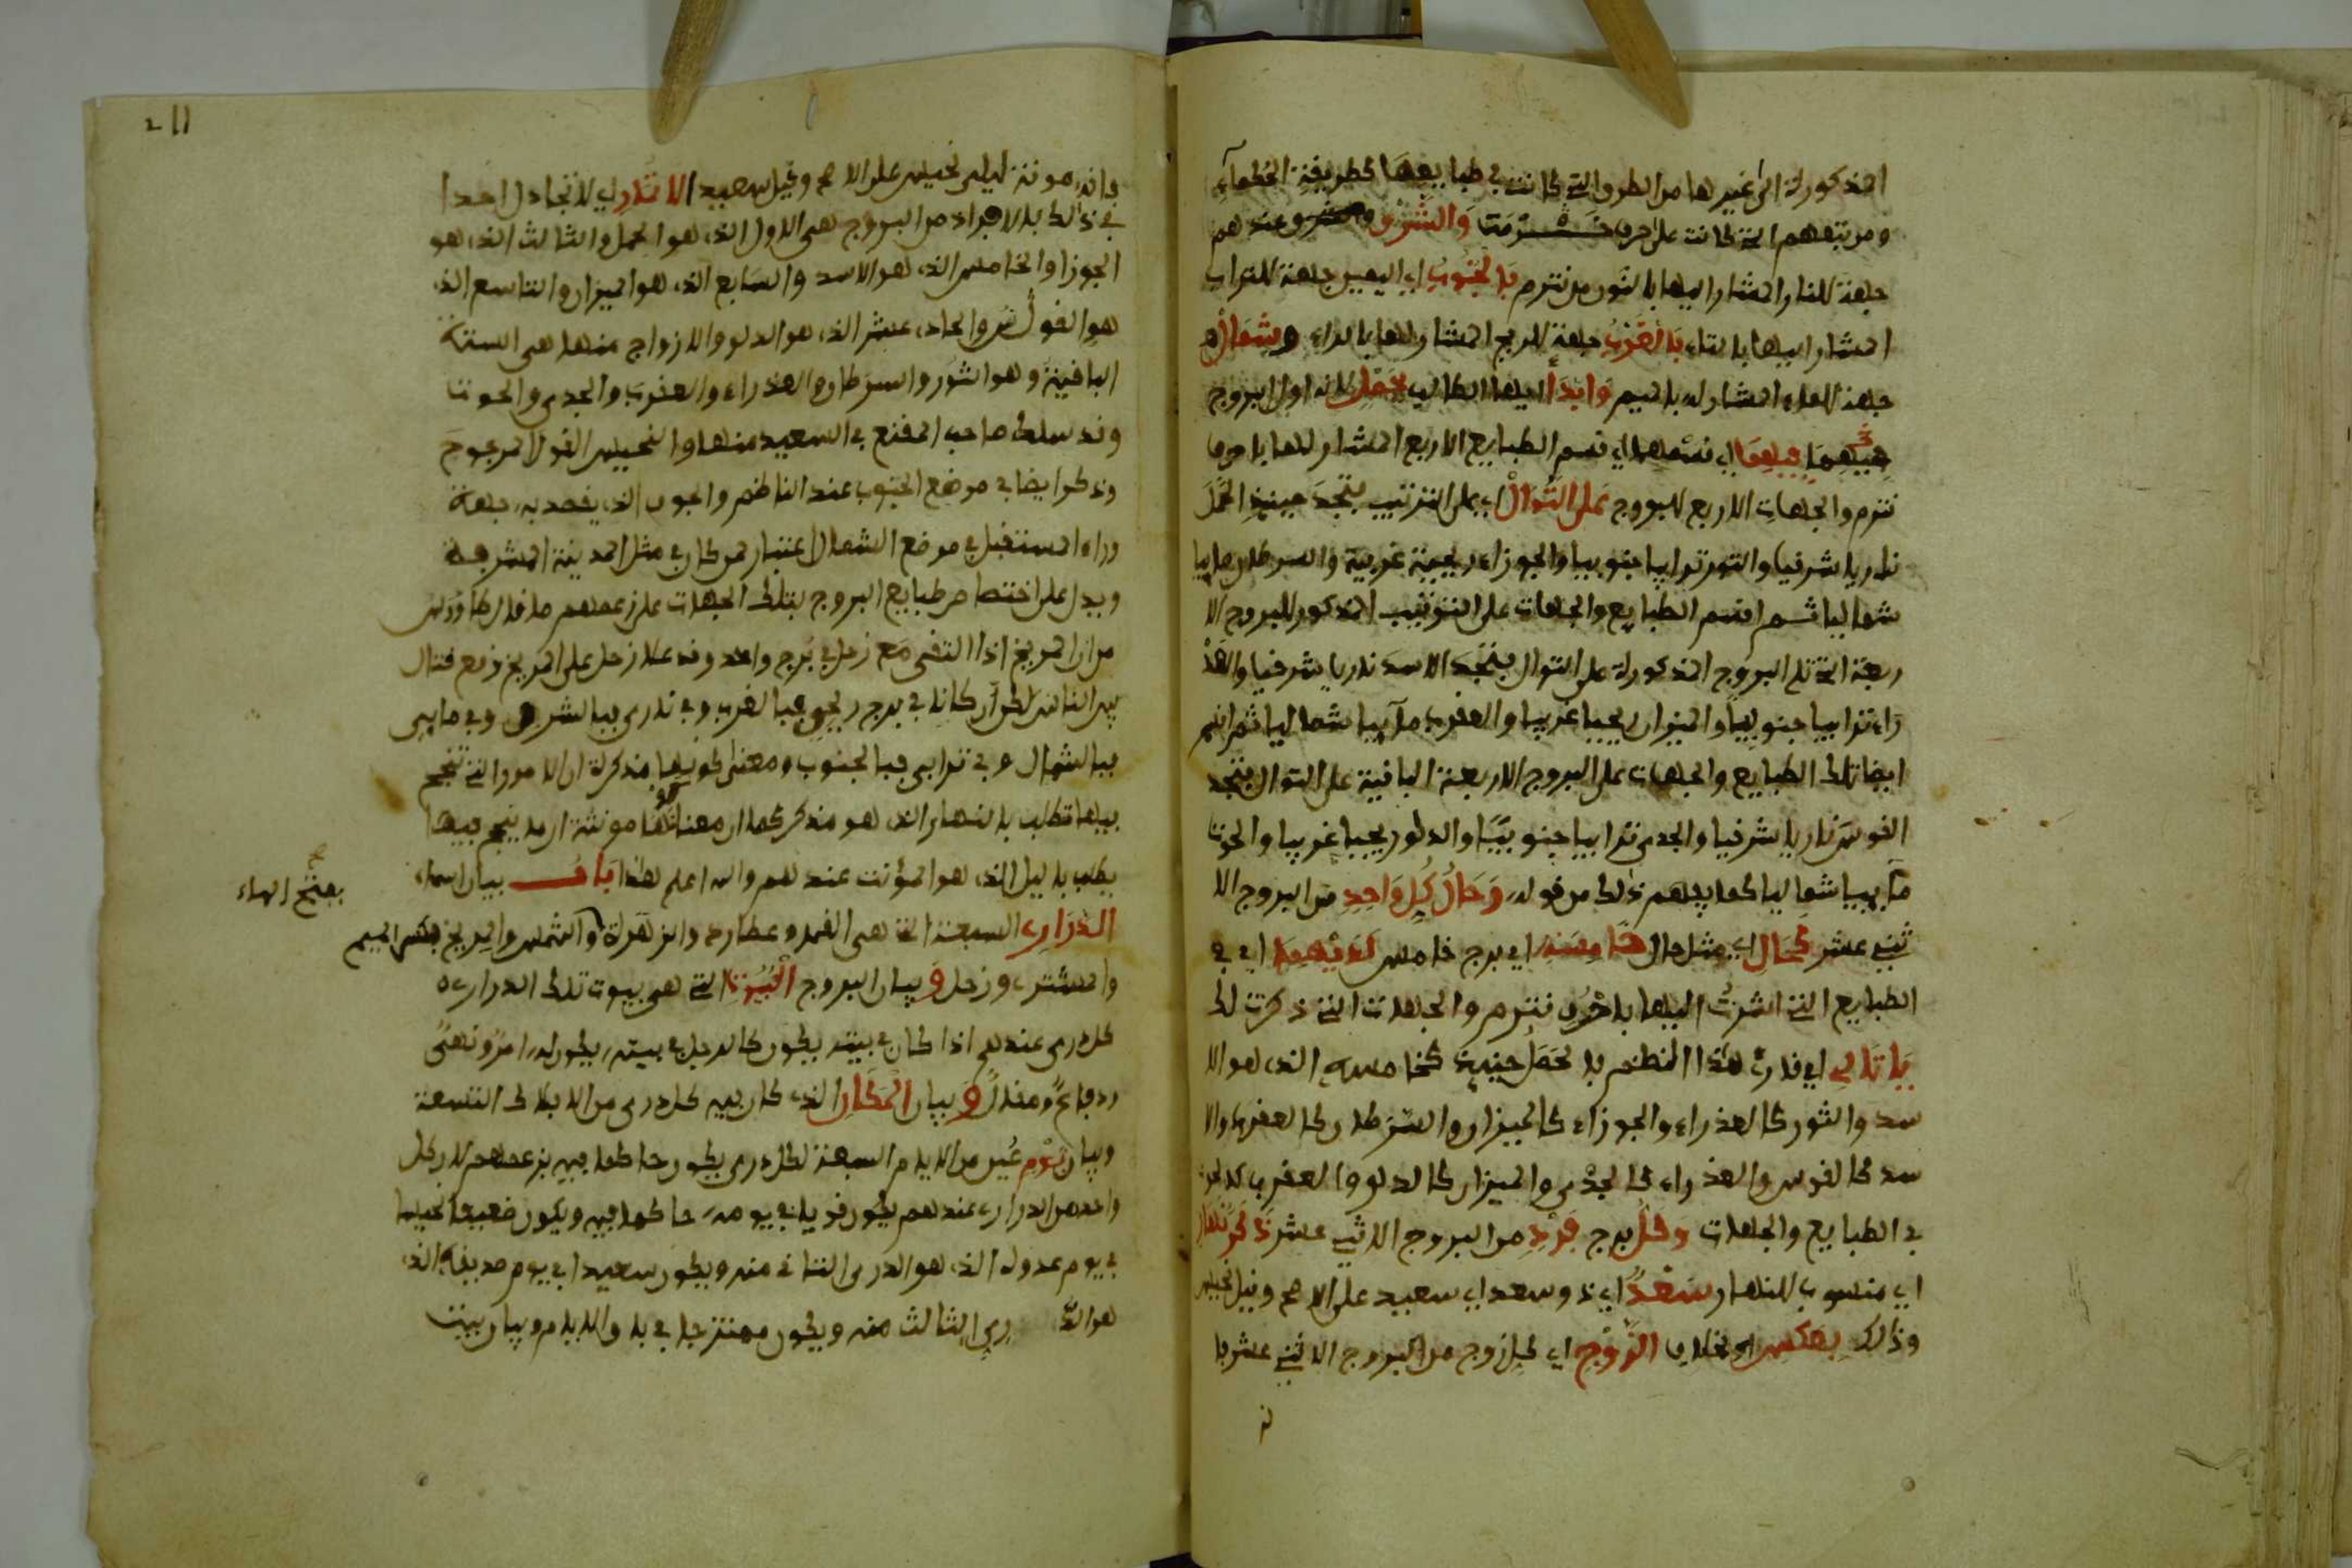 المذكورة الى غيرها من الطرو التي كانت في طبايعها كطريقة الحكماء
ومن تبعهم التي كانت على حرف والشرو عندهم
جهة للنار المشار اليها بالنون من نترم بالجنوب اي اليمين جهة للتراب
المشار اليها بالتاء بالغرب جهة للريح المشار لها بالراء وشمال
جهة للماء المشار له بالميم وابدأ ايها الطالب بحمل لانه اول البروج
اي قسم الطبايع الاربع المشار لها باحرف
نترم والجهات الاربع للبروج على التوال اي على الترتيب يتجد حينيذ الحمل
ناريا شرقيا والثور ترابيا جنوبيا والجوزاء ريحية غربية والسرطان مايبا
شماليا ثم اقسم الطبايع والجهات على الترتيب المذكور للبروج الا
ربعة التي تلي البروج المذكورة على التوال يتجد الاسد ناريا شرقيا والعذ
راء ترابيا جنوبيا والميزان ريحيا غربيا والعقرب مآيبا شماليا ثم اقسم
ايضا تلك الطبايع والجهات على البروج الاربعة الباقية على التوال يتجد
القوس ناريا شرقيا والجدي ترابيا جنوبيا والدلو ريحيا غربيا والحوت
مآيبيا شماليا كما يفهم ذلك من قوله وحال كل واحد من البروج الا
ثني عشر كحال اي مثل حال خامسه اي برج خامس لديهما اي في
الطبايع التي اشرت اليها باحرف نترم والجهات التي ذكرت لك
يا تالي اي قارئ هذا النظم بالحمل حينيذ كخامسه الذي هو الا
سد والثور كالعذراء والجوزاء كالميزان والسرطان كالعقرب والا
سد كالقوس والعذراء كالجدي والميزان كالدلو والعقرب كالحوت
في الطبايع والجهات وكل برج فرد من البروج الاثني عشر ذكر نهار
اي منسوب للنهار سعد اي ذو سعد اي سعيد على الاصح وقيل نحيس
وذلك بعكس اي بخلاف الزوج اي كل زوج من البروج الاثني عشر فا
211
فانه مونثة ليلي نحيس على الاصح وقيل سعيد الا تدري لا تجادل احدا
في ذالك بالافراد من البروج هي الاول الذي هو الحمل والثالث الذي هو
الجوزا والخامس الذي هو الاسد والسابع الذي هو الميزان والتاسع الذي
هو القوس والحادي عشر الذي هو الدلو والازواج منها هي الستة
الباقية وهو الثور والسرطان والعذراء والعقرب والجدي والحوت
وقد سلك صاحب المقنع في السعيد منها والنحيس القول المرجوح
وذكر ايضا في موضع الجنوب عند الناظم والجوف الذي يقصد به جهة
وراء المستقبل في موضع الشمال اعتبار لمن كان في مثل المدينة المشرفة
ويدل على اختصاص طبايع البروج بتلك الجهات على زعمهم ما قال
من ان المريخ اذا التقى مع زحل في برج واحد وقد علا زحل على المريخ وقع قتال
بين الناس لكن ان كان في برج ريحي فبالغرب وفي ناري فبالشرق وفي مايي
فبالشمال وفي ترابي فبالجنوب ومعنى كونها مذكرة ان الامور التي تنجح
فيها تطلب بالنهار الذي هو مذكر كما ان معنى كونها مونثة ان ما ينجح فيها
يطلب بالليل الذي هو المؤنث عندهم والله اعلم هذا باب بيان اسماء
الدراري السبعة التي هي القمر وعطارد والزهرة والشمس والمريخ بكسر الميم
بفتح الهاء
والمشتري وزحل و بيان البروج البيوت التي هي بيوت تلك الدراري
كل دري عندهم اذا كان في بيته يكون كالرجل في بيته يكون له امر ونهي
ودفاع ومنال و بيان المكان الذي كان فيه كل دري من الافلاك التسعة
وبيان يوم عين من الايام السبعة لكل دري يكون حاكما فيه بزعمهم لان كل
واحد من الدراري عندهم يكون قويا في يومه حاكما فيه ويكون ضعيفا نحيسا
في يوم عدوه الذي هو الدري الثاني منه ويكون سعيدا في يوم صديقه الذي
هو الدري الثالث منه ويكون ممتزجا في باقي الايام وبيان بيت